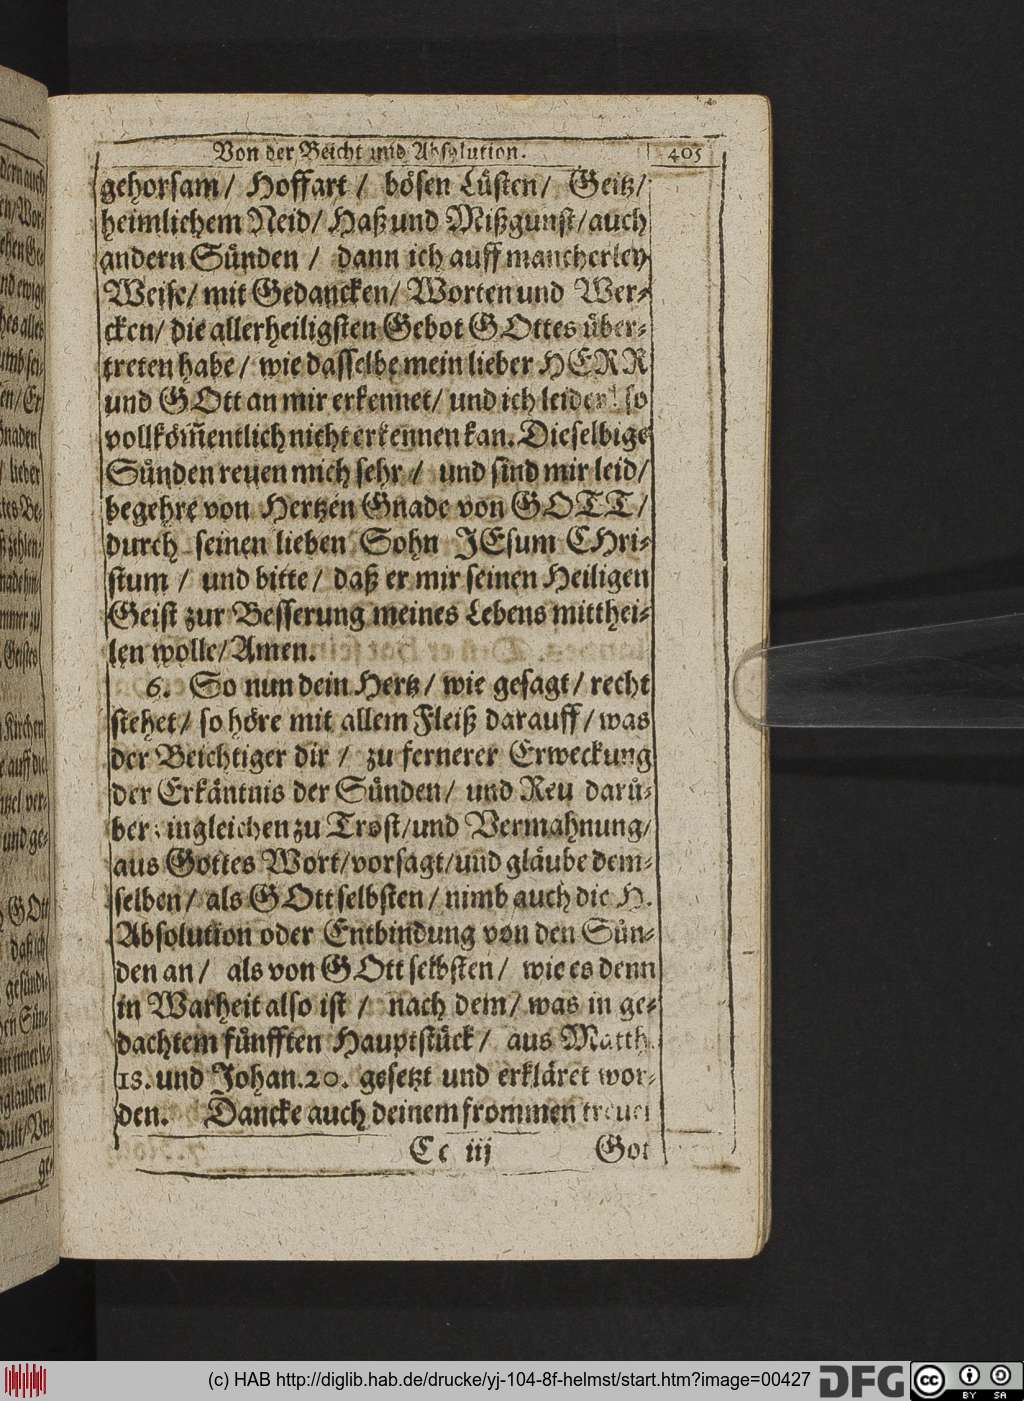 Von der Beicht und Absolution. 405
gehorsam/ Hoffart/ bösen Lüsten/ Geitz/
heimlichem Neid/ Haß und Mißgunst/ auch
andern Sünden / dann ich auff mancherley
Weise/ mit Gedancken/ Worten und Wer-
cken/ die allerheiligsten Gebot GOttes über-
treten habe/ wie dasselbe mein lieber HERR
und GOtt an mir erkennet/ und ich leider! so
vollköm̃entlich nicht erkennen kan. Dieselbige
Sünden reuen mich sehr / und sind mir leid/
begehre von Hertzen Gnade von GOTT/
durch seinen lieben Sohn JEsum CHri-
stum / und bitte/ daß er mir seinen Heiligen
Geist zur Besserung meines Lebens mitthei-
len wolle/ Amen.
6. So nun dein Hertz/ wie gesagt/ recht
stehet/ so höre mit allem Fleiß darauff/ was
der Beichtiger dir / zu fernerer Erweckung
der Erkäntnis der Sünden/ und Reu darü-
ber, ingleichen zu Trost/ und Vermahnung/
aus Gottes Wort/ vorsagt/ und gläube dem-
selben/ als GOtt selbsten/ nimb auch die H.
Absolution oder Entbindung von den Sün-
den an/ als von GOtt selbsten/ wie es denn
in Warheit also ist / nach dem/ was in ge-
dachtem fünfften Hauptstück/ aus Matth.
18. und Johan. 20. gesetzt und erkläret wor-
den. Dancke auch deinem frommen treuen
Cc iij Got
(c) HAB http://diglib.hab.de/drucke/yj-104-8f-helmst/start.htm?image=00427
DFG
cc BY SA